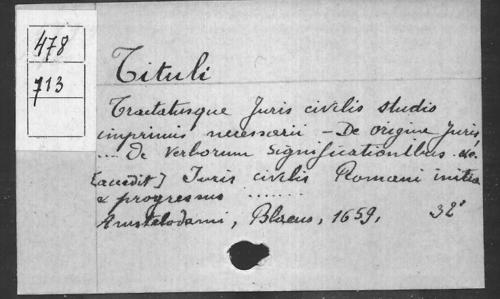 478
713
Tituli
Tractatusque Juris civilis studio
imprimis necessarii - De origine Juris,
.... De Verborum Significationibus. etc.
[accedit] Juris civilis Romani initia
& progressus .......
Amstelodami, Blaeus, 1659, 32°